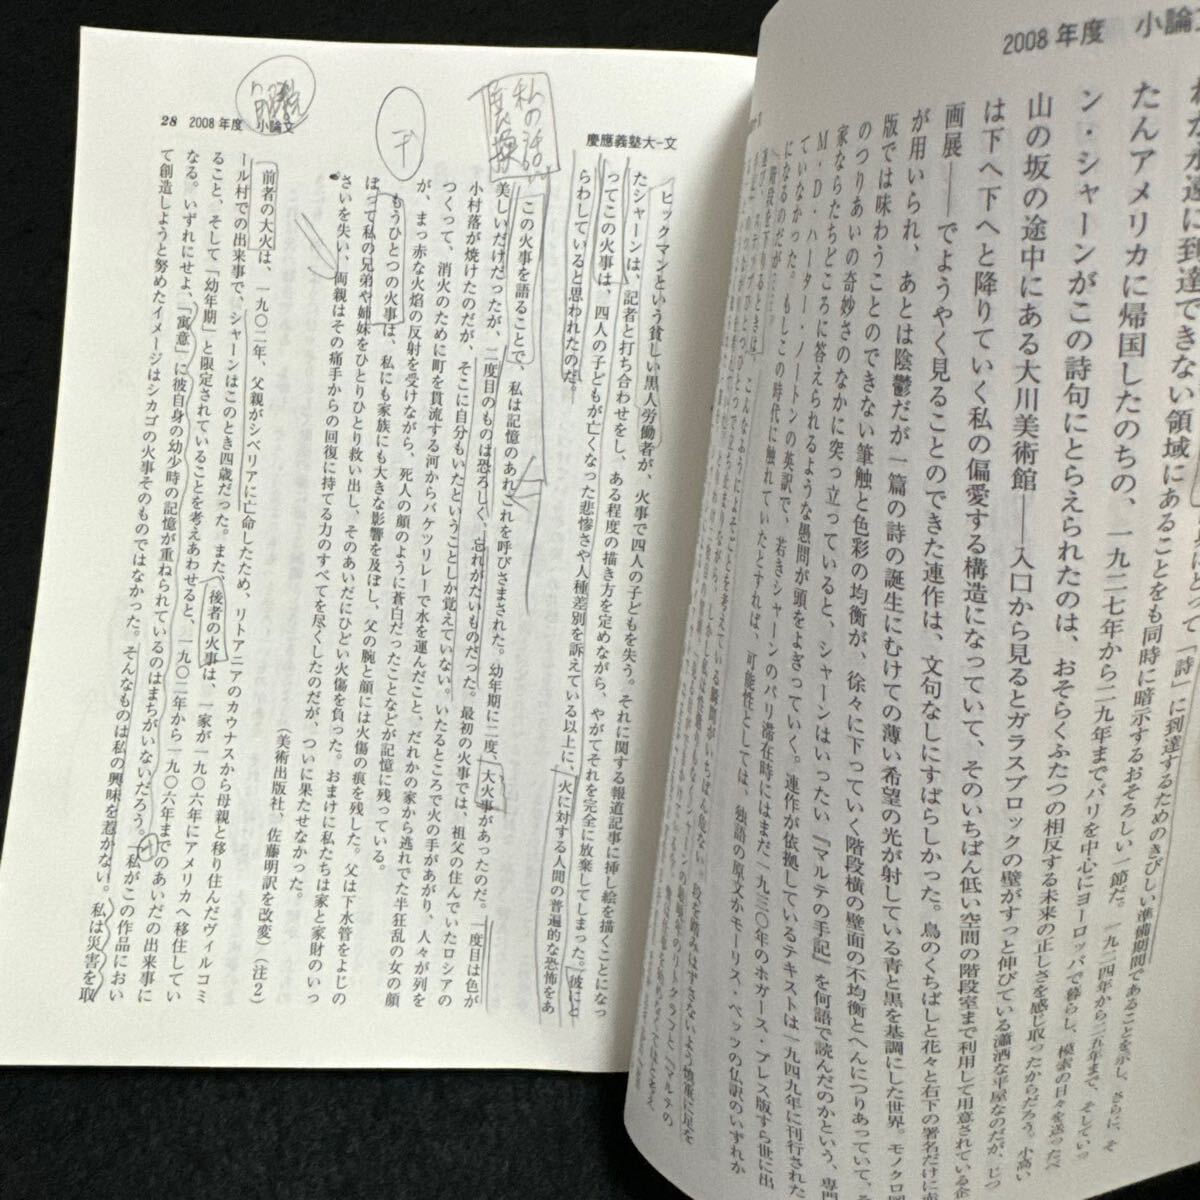 28 2008年度 小論文
慶應義塾大-文
私の話
転換
ヒックマンという貧しい黒人労働者が、火事で四人の子どもを失う。それに関する報道記事に挿し絵を描くことになっ
たシャーンは、記者と打ち合わせをし、ある程度の描き方を定めながら、やがてそれを完全に放棄してしまった。彼にと
ってこの火事は、四人の子どもが亡くなった悲惨さや人種差別を訴えている以上に、火に対する人間の普遍的な恐怖をあ
らわしていると思われたのだ。
この火事を語ることで、私は記憶のあれこれを呼びさまされた。幼年期に二度、大火事があったのだ。一度目は色が
美しいだけだったが、二度目のものは恐ろしく、忘れがたいものだった。最初の火事では、祖父の住んでいたロシアの
小村落が焼けたのだが、そこに自分もいたということしか覚えていない。いたるところで火の手があがり、人々が列を
つくって、消火のために町を貫流する河からバケツリレーで水を運んだこと、だれかの家から逃れでた半狂乱の女の顔
が、まっ赤な火焔の反射を受けながら、死人の顔のように蒼白だったことなどが記憶に残っている。
もうひとつの火事は、私にも家族にも大きな影響を及ぼし、父の腕と顔には火傷の痕を残した。父は下水管をよじの
ぼって私の兄弟や姉妹をひとりひとり救い出し、そのあいだにひどい火傷を負った。おまけに私たちは家と家財のいっ
さいを失い、両親はその痛手からの回復に持てる力のすべてを尽くしたのだが、ついに果たせなかった。
(美術出版社、佐藤明訳を改変)(注2)
前者の大火は、一九〇二年、父親がシベリアに亡命したため、リトアニアのカウナスから母親と移り住んだヴィルコミ
ール村での出来事で、シャーンはこのとき四歳だった。また、後者の火事は、一家が一九〇六年にアメリカへ移住してい
ること、そして「幼年期」と限定されていることを考えあわせると、一九〇二年から一九〇六年までのあいだの出来事に
なる。いずれにせよ、「寓意」に彼自身の幼少時の記憶が重ねられているのはまちがいないだろう。「私がこの作品におい
て創造しようと努めたイメージはシカゴの火事そのものではなかった。そんなものは私の興味を惹かない。私は災害を取
2008年度 小論文
たんアメリカに帰国したのちの、一九二七年から二九年までパリを中心にヨーロッパで暮らし、模索の日々を送ったベ
ン・シャーンがこの詩句にとらえられたのは、おそらくふたつの相反する未来の正しさを感じ取ったからだろう。小高い
山の坂の途中にある大川美術館――入口から見るとガラスブロックの壁がすっと伸びている瀟洒な平屋なのだが、じつ
は下へ下へと降りていく私の偏愛する構造になっていて、そのいちばん低い空間の階段室まで利用して用意されている企
画展――でようやく見ることのできた連作は、文句なしにすばらしかった。鳥のくちばしと花々と右下の署名だけに
が用いられ、あとは陰鬱だが一篇の詩の誕生にむけての薄い希望の光が射している青と黒を基調にした世界。モノクロ
版では味わうことのできない筆触と色彩の均衡が、徐々に下っていく階段横の壁面の不均衡とへんにつりあっていて、
のつりあいの奇妙さのなかに突っ立っていると、シャーンはいったい『マルテの手記』を何語で読んだのかという、専門
家ならたちどころに答えられるような愚問が頭をよぎっていく。連作が依拠しているテキストは一九四九年に刊行された
M・D・ハーター・ノートンの英訳で、若きシャーンのパリ滞在時にはまだ一九三〇年のホガース・プレス版すら世に出
ていなかった。もしこの時代に触れていたとすれば、可能性としては、独語の原文かモーリス・ベッツの仏訳のいずれか
になるのだが